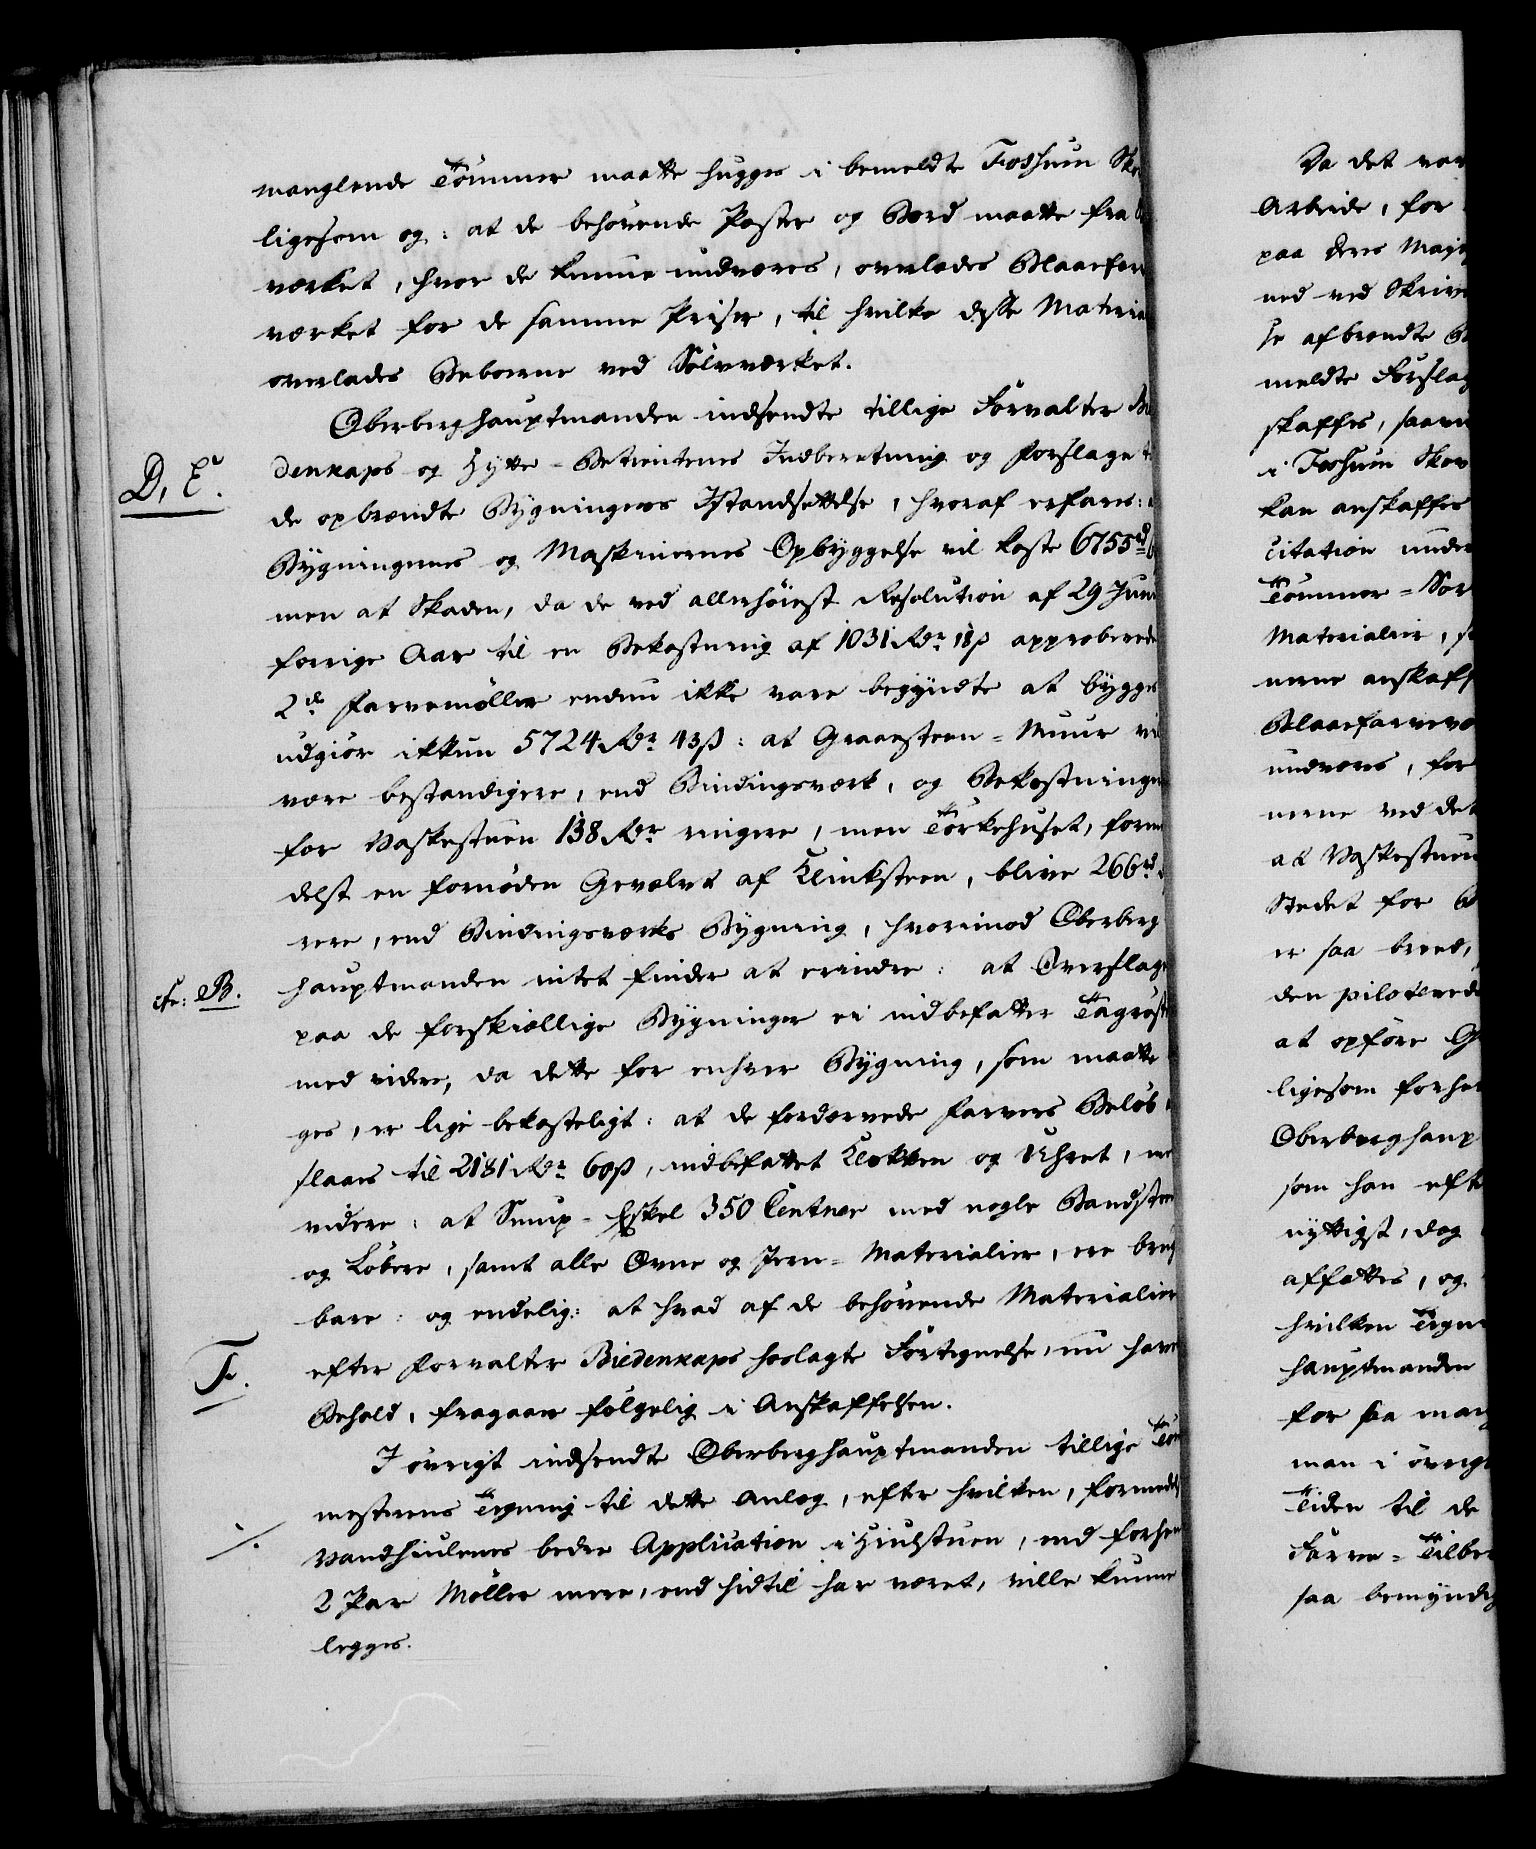 manglende Tömmer maatte hugges i bemeldte Fossum Sko
ligesom og: at de behövende Poster og Bord maatte fra
værket, hvor de kunne undværes, overlades Blaafar
værket for de samme Priser, til hvilke disse Materia
overlades Beboerne ved Sölvværket.
Oberberghauptmanden indsendte tillige Forvalter Bie
D, E.
denkaps og Hytte-Betientenes Indberetning og Forslag t
de opbrændte Bygningers Istandsættelse, hvoraf erfares:
Bygningernes og Maskinernes Opbyggelse vil koste 6755 rd
men at Skaden, da de ved allerhöieste Resolution af 29 Juni
forrige Aar til en Bekostning af 1031 Rdr 18ß approberede
2de Farvemöller endnu ikke vare begyndte at bygges
udgiör ikkun 5724 Rdr 43ß: at Graasteen-Muur vil
være bestandigere, end Bindingsværk, og Bekostningen
for Vaskestuen 138 Rdr ringere, men Törkehuset, forme
delst en fornöden Gevælvt af Klinksteen, blive 266 rd
rere, end Bindingsværks Bygning, hvorimod Oberberg
cfr: B.
hauptmanden intet finder at erindre: at Overslag
paa de forskiællige Bygninger ei indbefatter Tagröst
med videre, da dette for enhver Bygning, som maatte
ges, er lige bekosteligt: at de fordærvede Farvers Belöb
slaaes til 2181 Rdr 60ß, indbefattet Klokken og Uhret, med
videre: at Smup-Eskel 350 Centner med nogle Bandsteen
og Löbere, samt alle Ovne og Jern-Materialier, ere brug
bare: og endelig: at hvad af de behövende Materialier
F.
efter Forvalter Biedenkaps hoslagte Fortegnelse, nu haves
Behold, fragaaer fölgelig i Anskaffelsen.
I övrigt indsendte Oberberghauptmanden tillige Töm
mesterens Tegning til dette Anlæg, efter hvilken, formedelst
⁒
Vandhiulenes bedre Application i Hiulstuen, end forhen
2 Par Möller mere, end hidtil har været, ville kunne
legges.
Da det var
Arbeide, for
paa Deres Maje
ned ved Skrive
se afbrændte B
meldte Forslag
skaffes, saave
i Fossum Skov
kan anskaffes
citation under
Tömmer-Sor
Materialier, s
nerne anskaff
Blaafarvevæ
undværes, for
nerne ved det
at Vaskestuen
Stedet for B
er saa breed,
den piloterede
at opföre G
ligesom forhe
Oberberghaup
som han eft
nyttigst, dog
affattes, og
hvilken Tegn
hauptmanden
for saa man
man i övrigt
Tiden til de
Farve-Tilbe
saa bemyndig